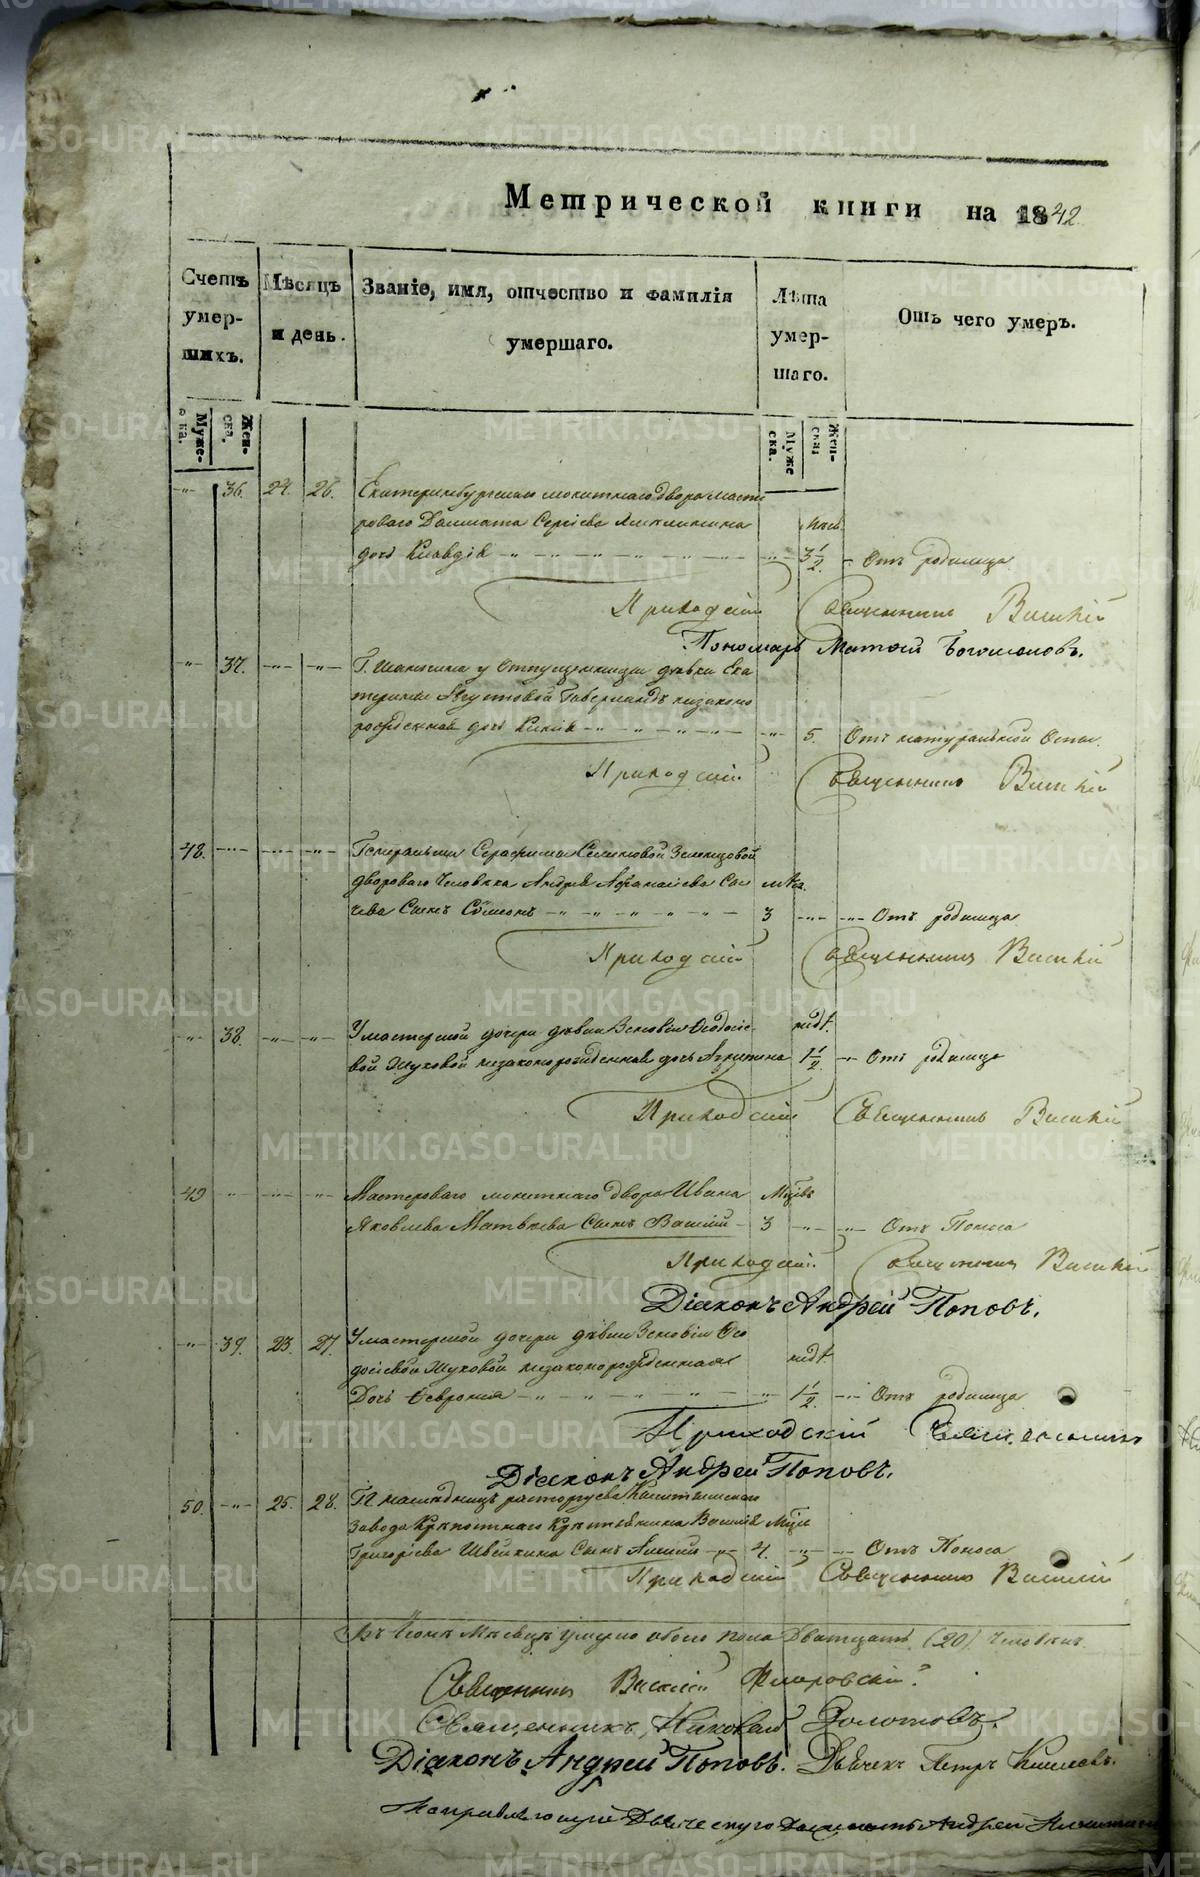 Метрической книги на 1842
Счетъ умер-шихъ.
Мѣсяцъ и день.
Званіе, имя, отчество и фамилія умершаго.
Лѣта умер-шаго.
Отъ чего умеръ.
Муже-ска.
Жен-ска.
Муже ска.
Жен-ски
36. 24. 26. Екатеринбургскаго монетнаго двора масте
роваго Далмата Сергѣева
дочь Клавдія 3 1/2. Отъ родимца
Приходскій Священникъ Василій
Пономарь Матвей Богомоловъ.
37. у отпущенницы дѣвки Ека
терины Августовой незаконо
рожденная дочь 5. Отъ натуральной Оспы.
Приходскій Священникъ Василій
48. Генеральши Серафимы
двороваго человѣка Андрея Афанасьева
Сынъ Симеонъ 3 Отъ родимца
Приходскій Священникъ Василій
38. У мастерской дочери дѣвки Зеновіи Ѳеодосіе-
вой Жуковой незаконорожденная дочь Агрипина 1 1/2. Отъ родимца
Приходскій Священникъ Василій
49 Мастероваго монетнаго двора Ивана
Яковлева Матвѣева Сынъ Василій 3 Отъ Поноса
Приходскій Священникъ Василій
Діаконъ Андрей Поповъ.
39. 23. 27. У мастерской дочери дѣвки Зеновіи Ѳео
досіевой Жуковой незаконорожденная
Дочь Ѳеврония 1 1/2. Отъ родимца
Приходскій Священникъ
Діаконъ Андрей Поповъ.
50. 25. 28. Гг наслѣдницъ расторгуева Каштымскаго
завода Крѣпостнаго Василія
Григорьева Швейкина Сынъ 4. Отъ Поноса
Приходскій Священникъ Василій
Въ семъ Мѣсяцѣ умерло обоего пола Двадцать (20) Человѣкъ.
Священникъ Василій Флоровскій
Священникъ Николай Золотовъ.
Діаконъ Андрей Поповъ. Дьячекъ Петръ Киселевъ.
Исправляющій Дьяческую должность Андрей
METRIKI.GASO-URAL.RU